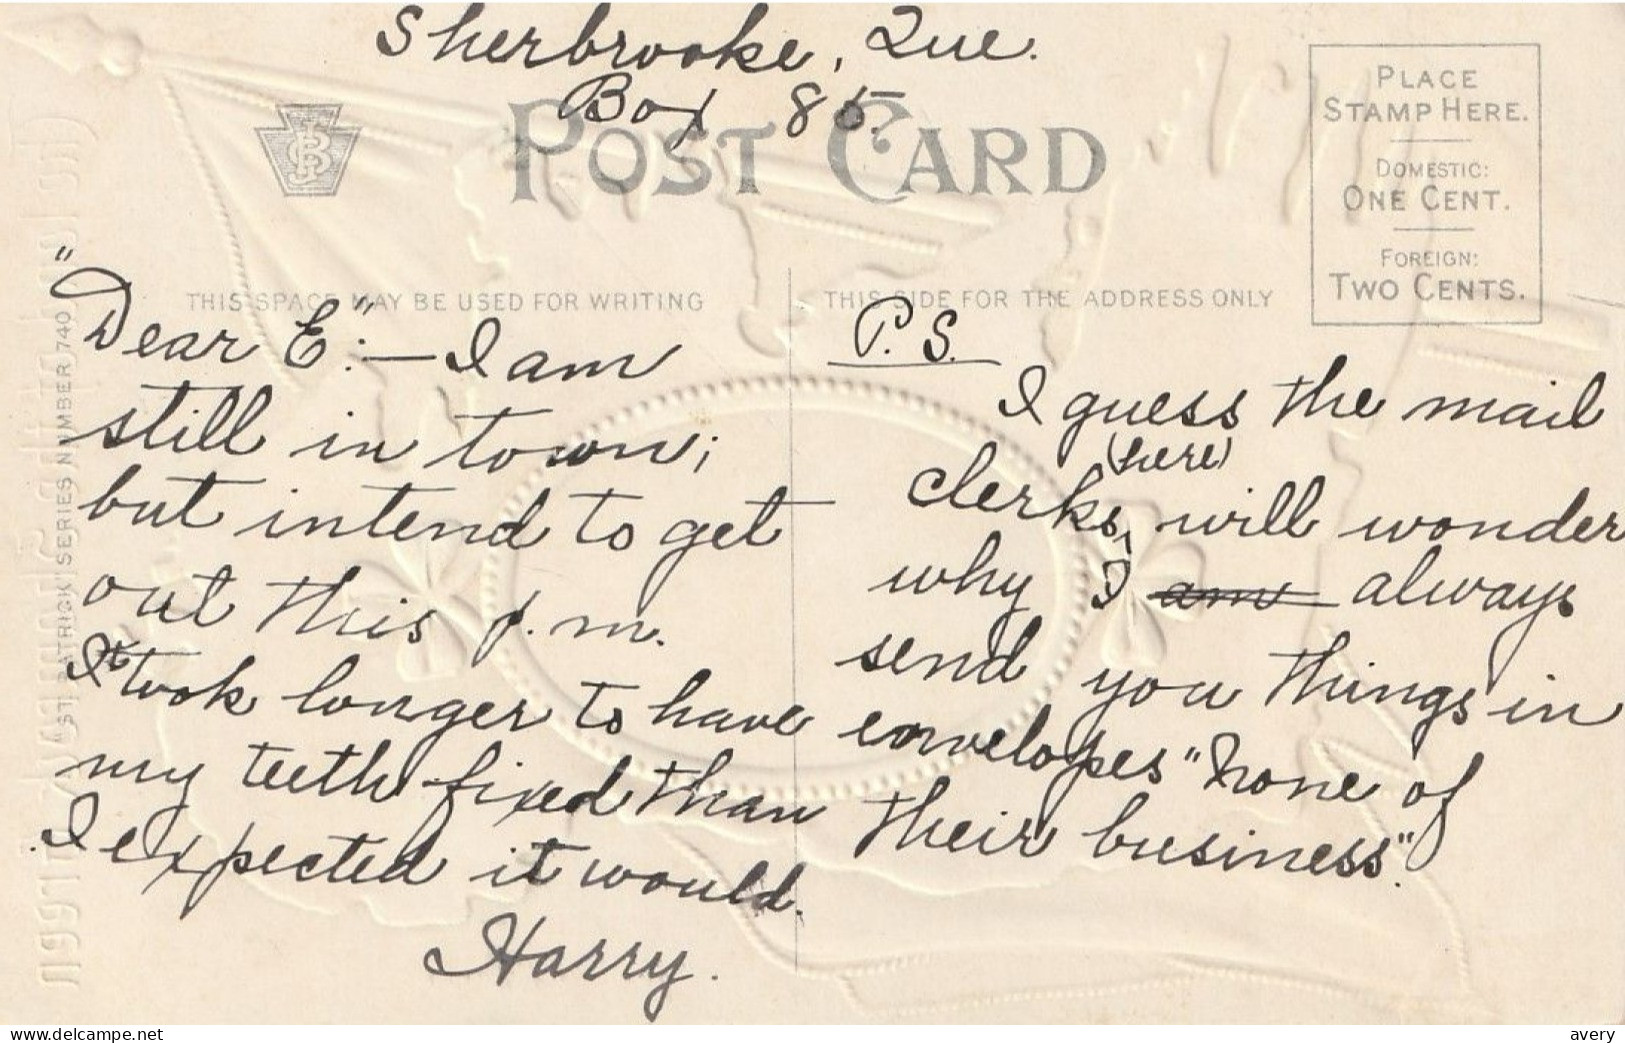 Sherbrooke, Que.
Box 85.
POST CARD
PLACE
STAMP HERE.
DOMESTIC:
ONE CENT.
FOREIGN:
TWO CENTS.
THIS SPACE MAY BE USED FOR WRITING
THIS SIDE FOR THE ADDRESS ONLY
"ST. PATRICK" SERIES NUMBER 740
"Dear E":— I am
still in town;
but intend to get
out this p.m.
It took longer to have
my teeth fixed than
I expected it would.
Harry.
P.S.
I guess the mail
clerks, (here) will wonder
why I am always
send you things in
envelopes "None of
their business".
www.delcampe.net
avery